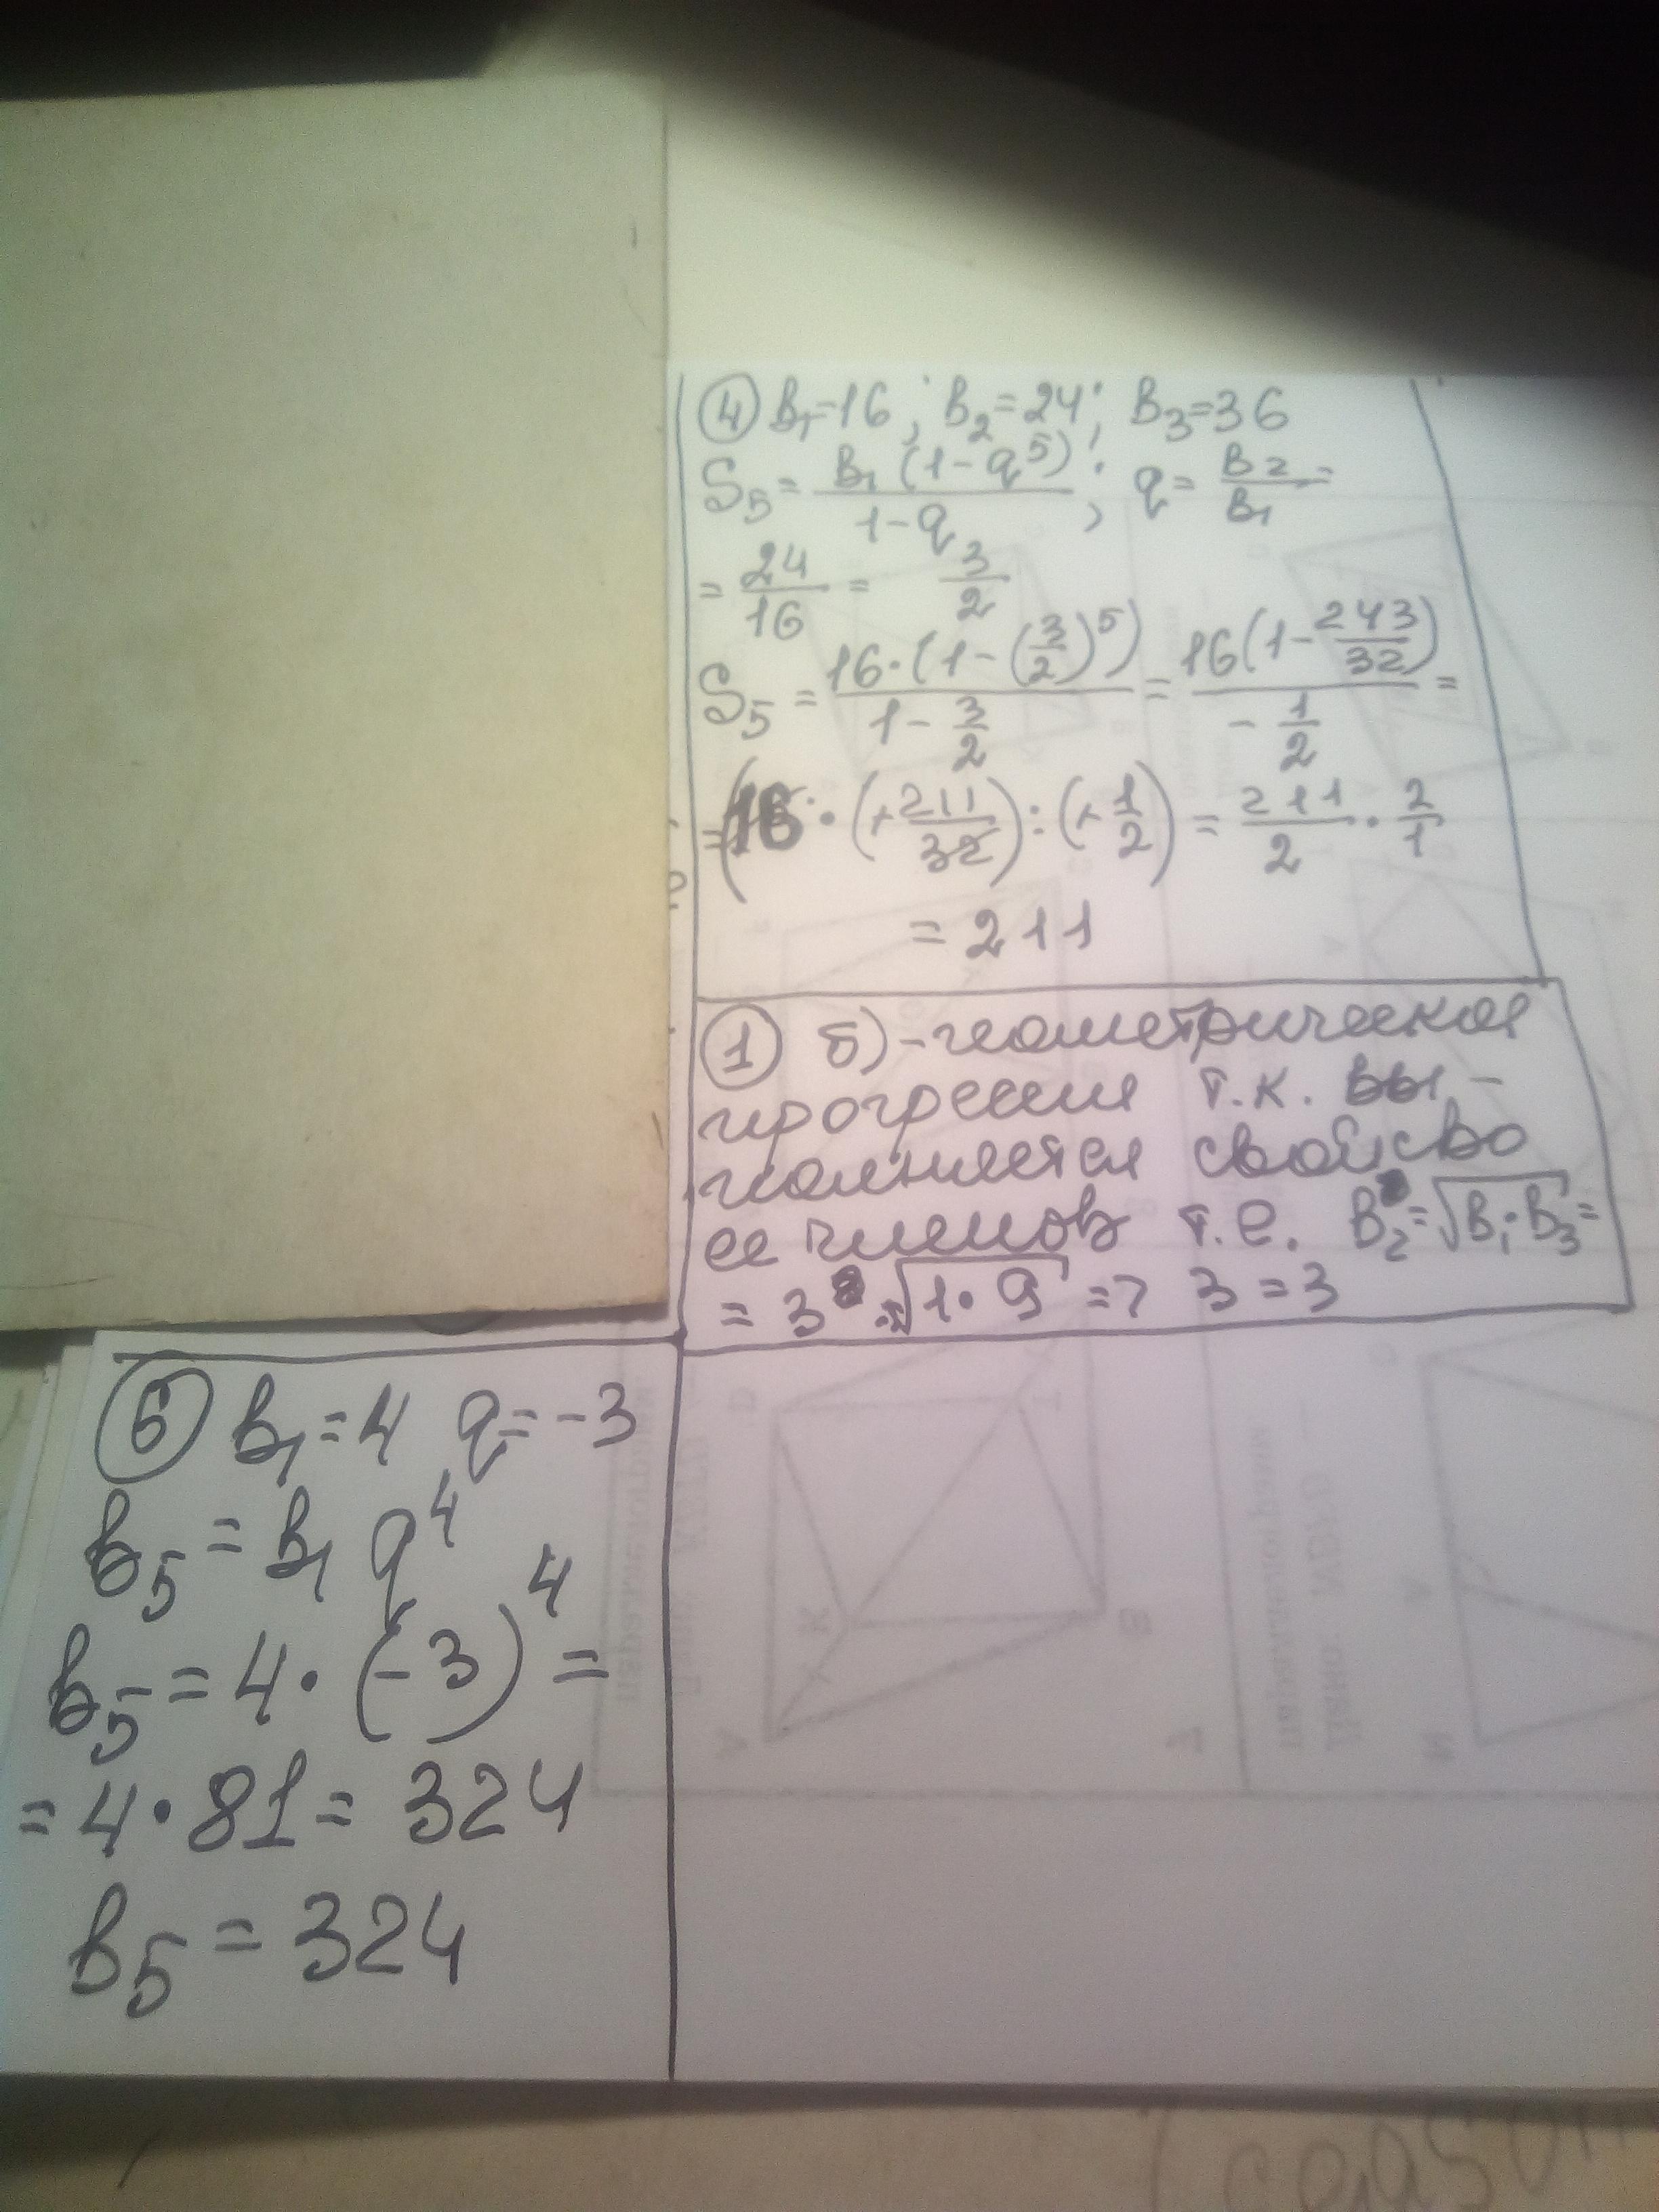 ④ в₁=16; в₂=24; в₃=36
S₅ = в₁(1-q⁵)/(1-q); q = в₂/в₁ =
= 24/16 = 3/2
S₅ = 16·(1-(3/2)⁵)/(1-3/2) = 16(1-243/32)/(-1/2) =
=(16·(+211/32):(+1/2) = 211/2 · 2/1
= 211
① б)-геометрическая
прогрессия т.к. вы-
полняется свойство
ее членов т.е. в₂=√(в₁·в₃)=
= 3 = √(1·9) => 3=3
⑥ в₁=4 q=-3
в₅ = в₁ q⁴
в₅ = 4·(-3)⁴ =
= 4·81 = 324
в₅ = 324